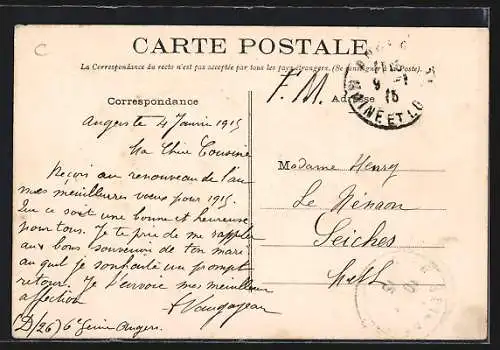 C
CARTE POSTALE
La Correspondance du recto n'est pas acceptée par tous les pays étrangers. (Se renseigner à la Poste).
F.M.
Correspondance
Adresse
9 -1
15
MAINE-ET-L
Angers le 4 Janvier 1915
Ma Chère Cousine
Reçois au renouveau de l'an
mes meilleures vœux pour 1915.
Que ce soit une bonne et heureuse
pour tous. Je te prie de me rappeler
aux bons souvenir de ton mari
au quel je souhaite un prompt
retour. Je t'envoie mes meilleurs
affection
(D/26) 6e Génie Angers.
Madame Henry
Le
Seiches
M&L